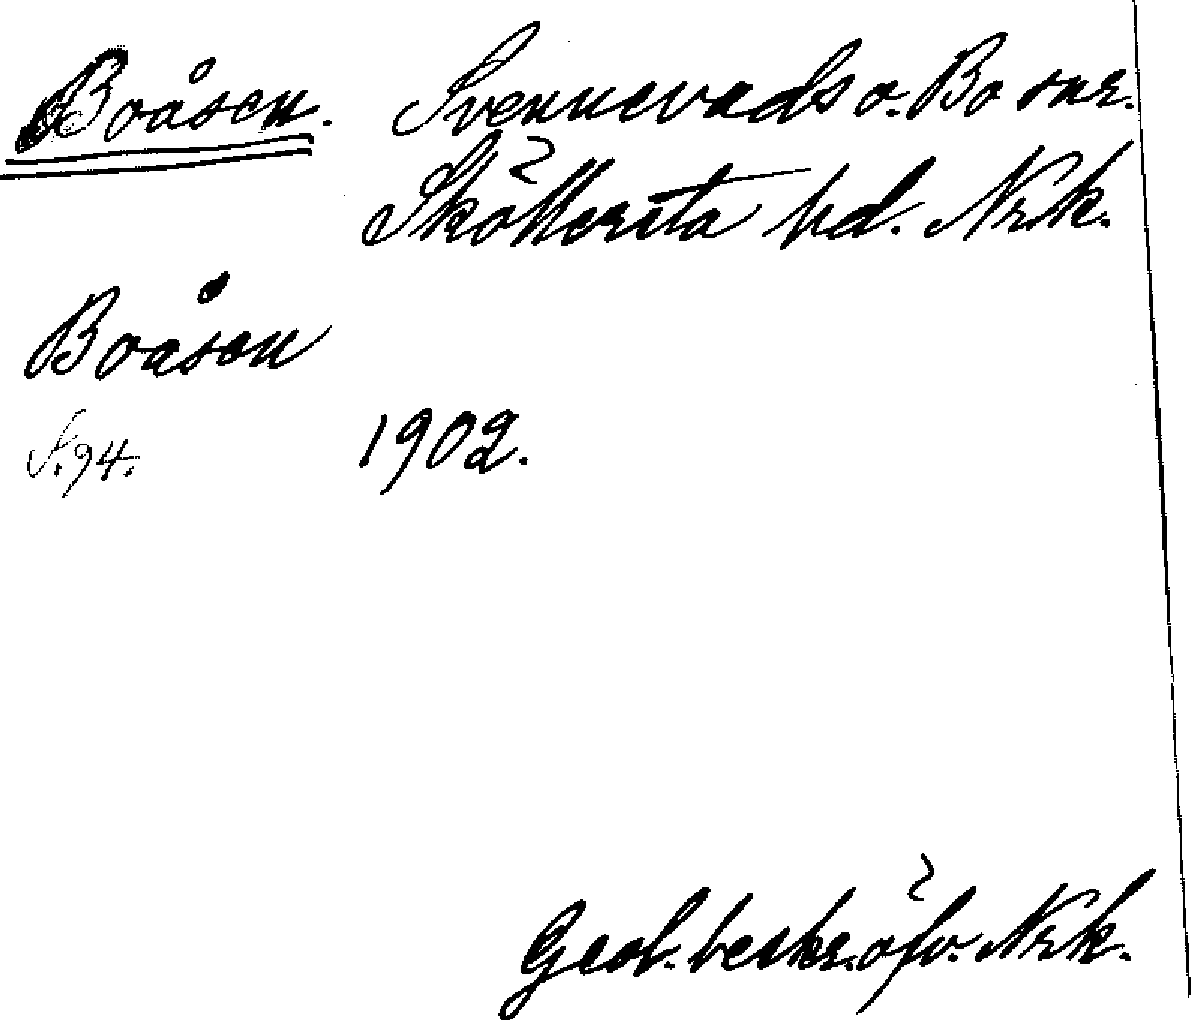 Boåsen. Svennevads o. Bo snr.
Sköllersta hd. Nrk.
Boåsen
S. 94. 1902.
Geol. beskr. öfv. Nrk.